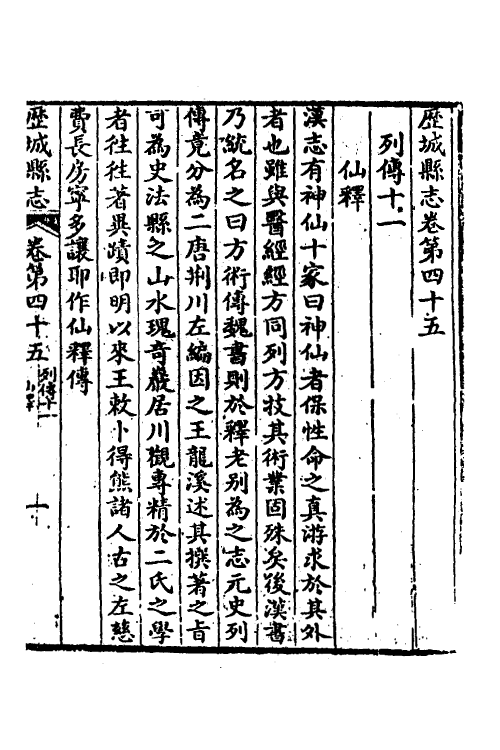 歷城縣志卷第四十五
列傳十一
仙釋
漢志有神仙十家曰神仙者保性命之真游求於其外
者也雖與醫經經方同列方技其術業固殊矣後漢書
乃統名之曰方術傳魏書則於釋老別為之志元史列
傳竟分為二唐荆川左編因之王龍溪述其撰著之旨
可為史法縣之山水瑰奇巖居川觀專精於二氏之學
者徃徃著異蹟即明以來王敕卜得熊諸人古之左慈
費長房寜多讓耶作仙釋傳
歷城縣志
卷第四十五
列傳十一
仙釋
一